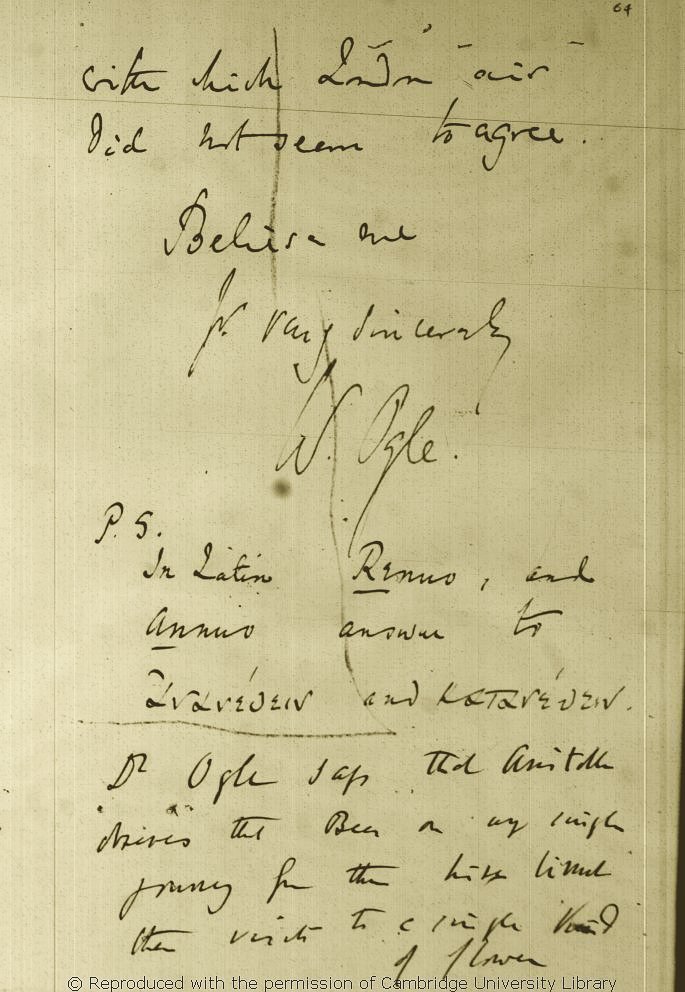 64
with which London air
did not seem to agree.
Believe me
Yr very sincerely
W. Ogle.
P.S.
In Latin Renuo, and
annuo answer to
ἀνανέυειν and κατανέυειν.
Dr Ogle says that Aristotle
observes that Bees on any single
journey from the hive limit
their visits to a single kind
of flower
© Reproduced with the permission of Cambridge University Library